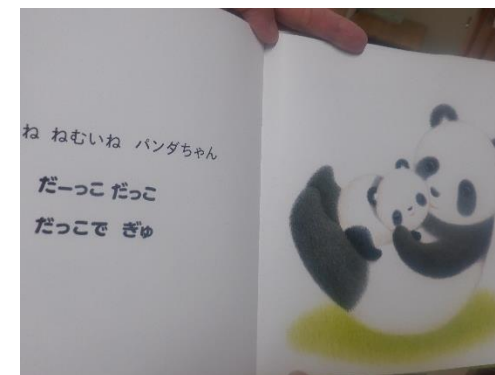 ね ねむいね パンダちゃん
だーっこ だっこ
だっこで ぎゅ